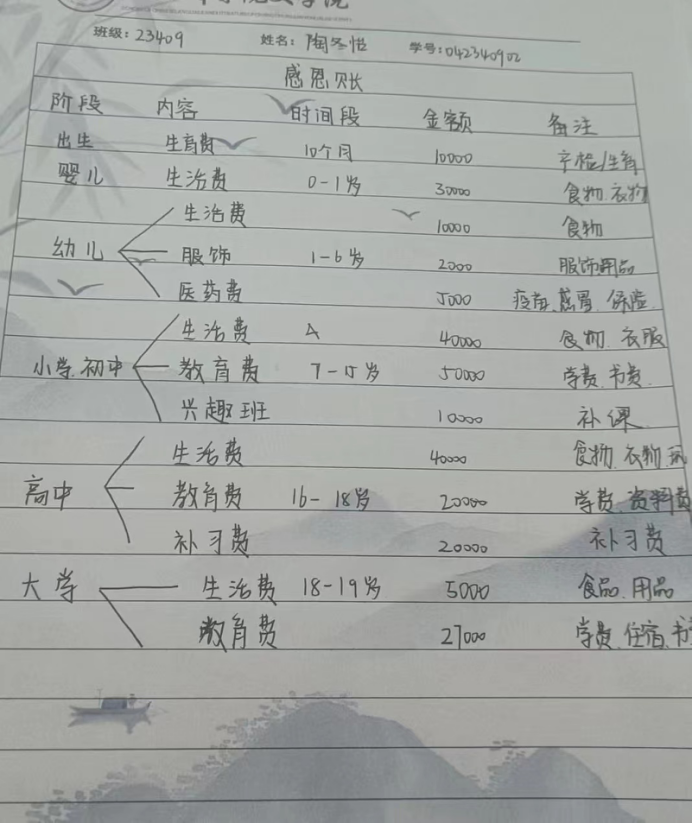 班级：23409 姓名：陶冬怡 学号：042340902
感恩账
阶段 内容 时间段 金额 备注
出生 生育费 10个月 10000 产检/生育
婴儿 生活费 0-1岁 30000 食物.衣物
生活费 10000 食物
幼儿 服饰 1-6岁 2000 服饰用品
医药费 5000 疫苗.感冒.保险
生活费 40000 食物.衣服
小学.初中 教育费 7-15岁 50000 学费.书费
兴趣班 10000 补课
生活费 40000 食物.衣物
高中 教育费 16-18岁 20000 学费.资料费
补习费 20000 补习费
大学 生活费 18-19岁 5000 食品.用品
教育费 27000 学费.住宿.书